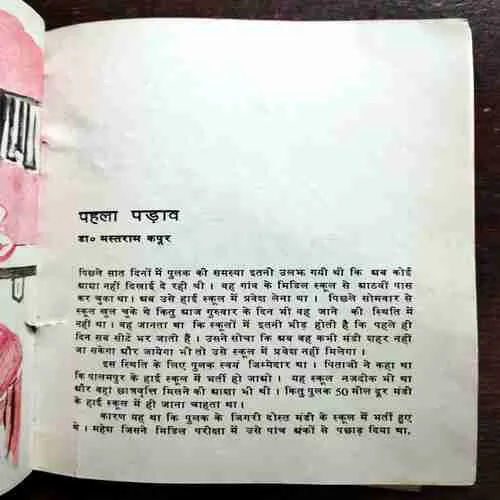 पहला पड़ाव
डा० मस्तराम कपूर
पिछले सात दिनों में पुलक की समस्या इतनी उलझ गयी थी कि अब कोई
आशा नहीं दिखाई दे रही थी । वह गांव के मिडिल स्कूल से आठवीं पास
कर चुका था । अब उसे हाई स्कूल में प्रवेश लेना था । पिछले सोमवार से
स्कूल खुल चुके थे किंतु आज गुरुवार के दिन भी वह जाने की स्थिति में
नहीं था । वह जानता था कि स्कूलों में इतनी भीड़ होती है कि पहले ही
दिन सब सीटें भर जाती हैं । उसने सोचा कि अब वह कभी मंडी शहर नहीं
जा सकेगा और जायेगा भी तो उसे स्कूल में प्रवेश नहीं मिलेगा ।
इस स्थिति के लिए पुलक स्वयं जिम्मेदार था । पिताजी ने कहा था
कि पालमपुर के हाई स्कूल में भर्ती हो जाओ । यह स्कूल नजदीक भी था
और वहां छात्रवृत्ति मिलने की आशा भी थी । किंतु पुलक 50 मील दूर मंडी
के हाई स्कूल में ही जाना चाहता था ।
कारण यह था कि पुलक के जिगरी दोस्त मंडी के स्कूल में भर्ती हुए
थे । महेश जिसने मिडिल परीक्षा में उसे पांच अंकों से पछाड़ दिया था,